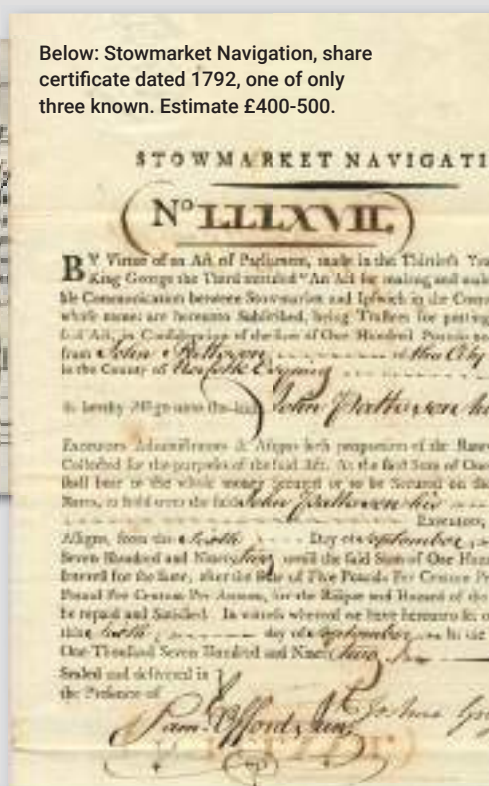 Below: Stowmarket Navigation, share
certificate dated 1792, one of only
three known. Estimate £400-500.
STOWMARKET NAVIGATI
No LLLXVII.
BY Virtue of an Act of Parliament, made in the Thirtieth Yea
King George the Third entitled "An Act for making and
ble Communication between Stowmarket and Ipswich in the Coun
whose names are hereunto Subscribed, being Trustees for putting
said Act, in Consideration of the Sum of One Hundred Pounds
from John Patteson of the City
in the County of Norfolk Esquire
do hereby Assign unto the said John Patteson his
Executors Administrators & Assigns such proportion of the Rates
Collected for the purposes of the said Act. As the said Sum of One
shall bear to the whole money secured or to be Secured on the
Rates, to hold unto the said John Patteson his
Executors,
Assigns, from the Day of September
Seven Hundred and Ninety two until the said Sum of One Hun
Interest for the same, after the Rate of Five Pounds Per Centum
Pound Per Centum Per Annum, for the Risque and Hazard of the
be repaid and Satisfied. In witness whereof we have hereunto
this day of September in the
One Thousand Seven Hundred and Ninety two
Sealed and delivered in
the Presence of